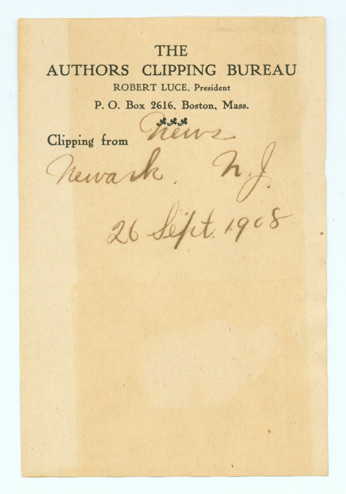 THE
AUTHORS CLIPPING BUREAU
ROBERT LUCE, President
P. O. Box 2616, Boston, Mass.
Clipping from News
Newark, N.J.
26 Sept. 1908